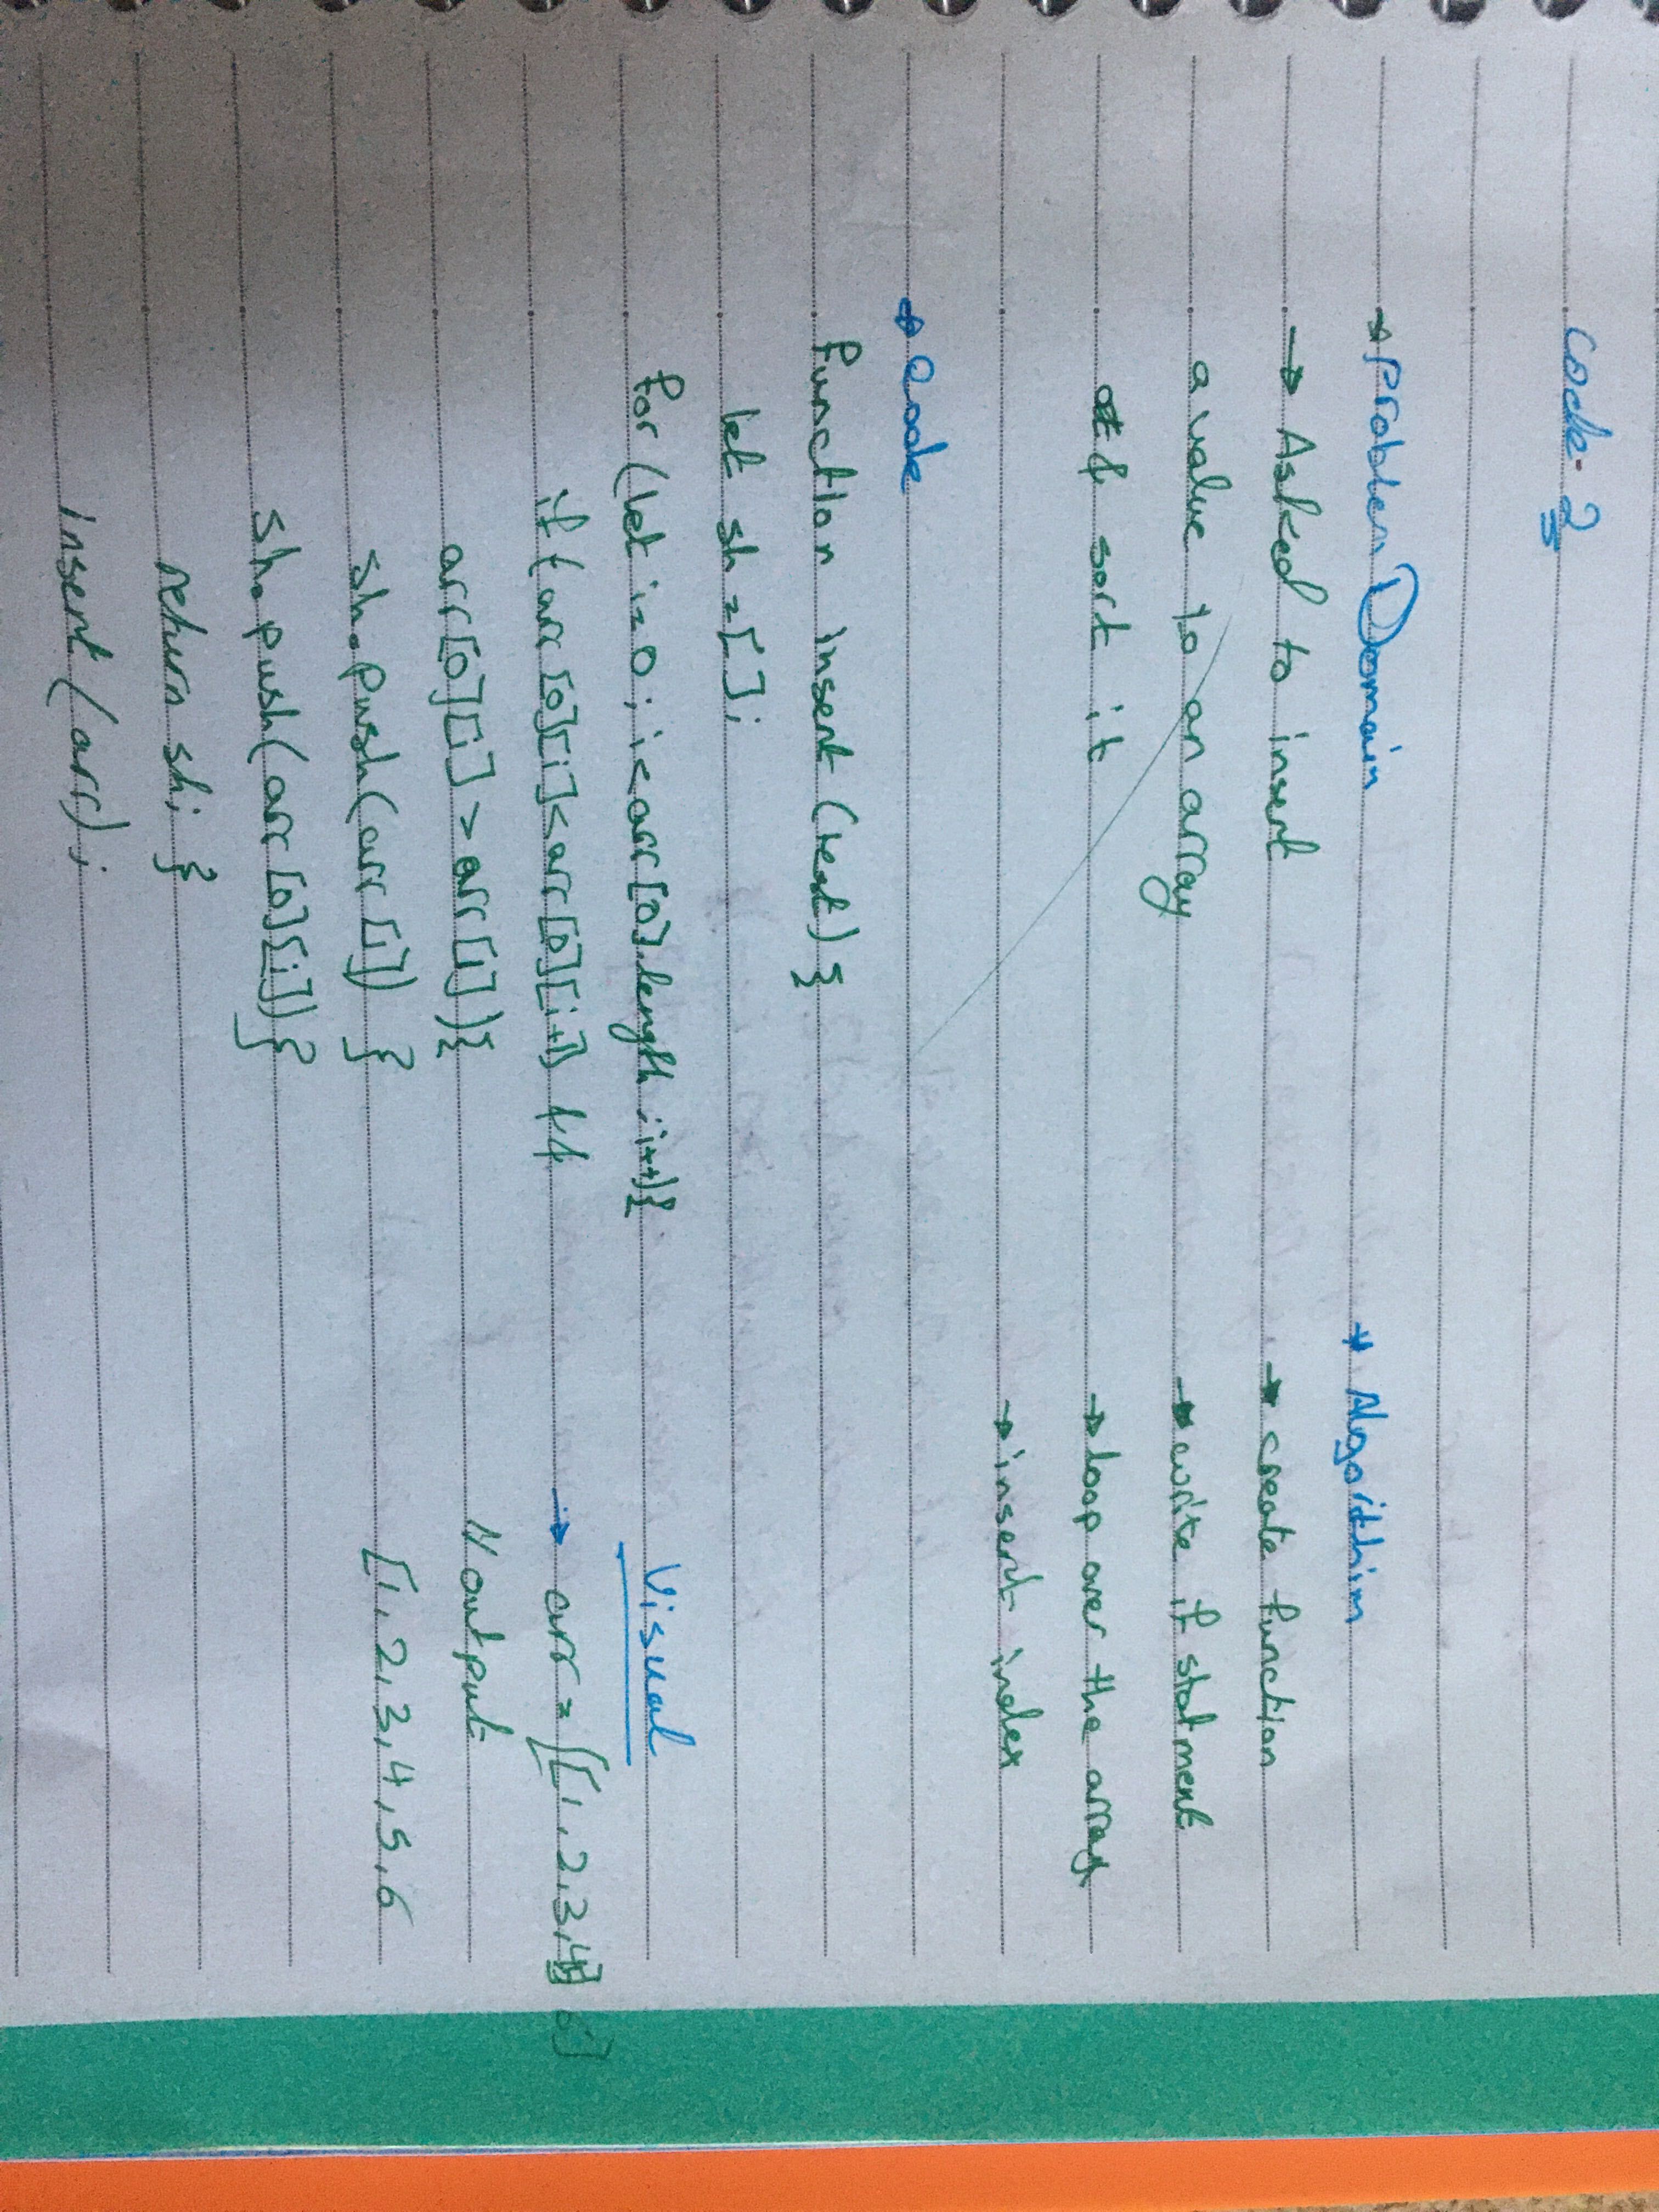 Code-2
→ Problem Domain
→ Asked to insert
a value to an array
& sort it
→ Algorithim
→ create function
→ write if statment
→ loop over the array
→ insert index
→ Code
function insert (test) }
let sh =[];
for (let i=0; i<arr[0].length; i++){
if (arr[0][i]<arr[0][i+1] &&
arr[0][i] > arr[1]){
sh.push(arr[1]) }
sh.push(arr[0][i])}
return sh; }
insert (arr);
Visual
→ arr = [[1,2,3,4]
// output
[1,2,3,4,5,6